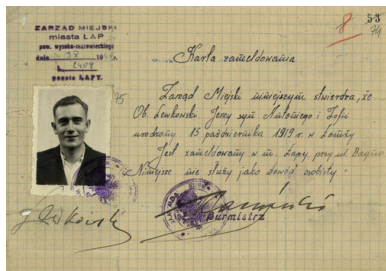 8 53
74
ZARZĄD MIEJSKI
miasta ŁAP
pow. wysoko-mazowieckiego
dnia
poczta ŁAPY.
Karta zameldowania
75
Zarząd Miejski niniejszym stwierdza, że
Ob. Lewkowski Jerzy syn Antoniego i Zofii
urodzony 15 października 1919 r. w Łomży
Jest zameldowany w m. Łapy przy ul.
Niniejsze nie służy jako dowód osobisty.
Burmistrz